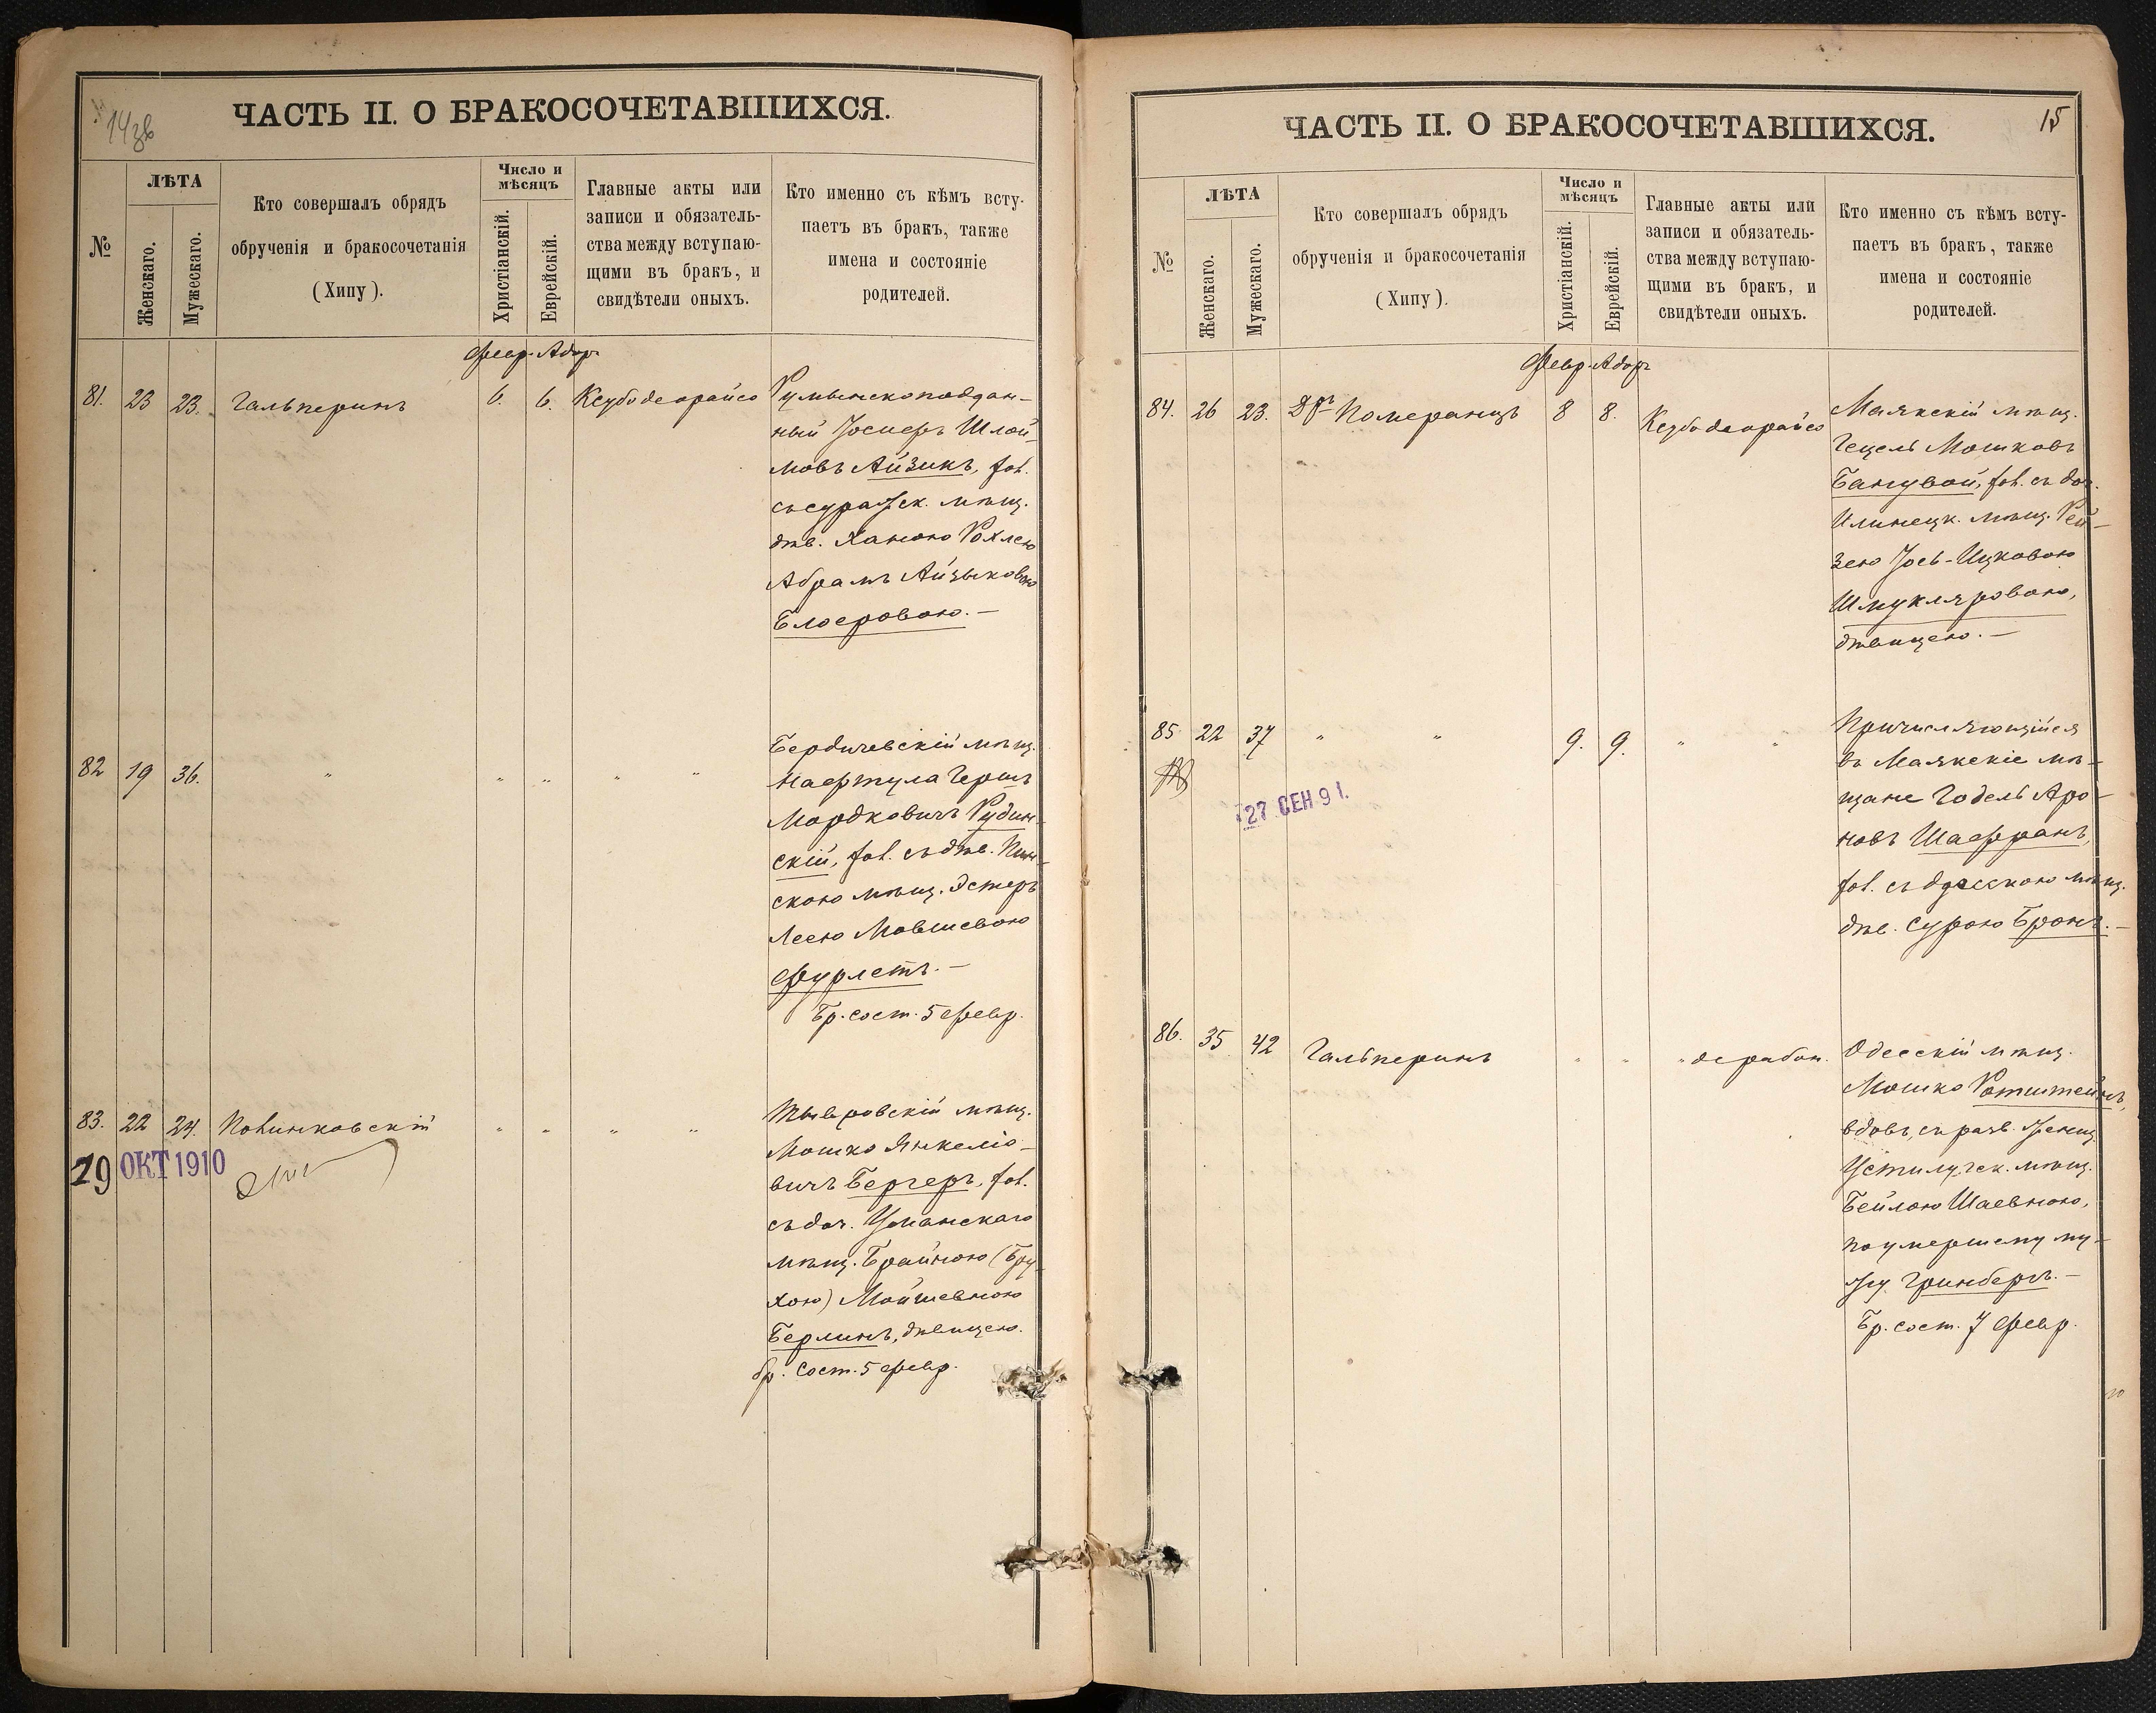 14 зв
ЧАСТЬ II. О БРАКОСОЧЕТАВШИХСЯ.
№
ЛѢТА
Женскаго.
Мужескаго.
Кто совершалъ обрядъ
обрученія и бракосочетанія
(Хипу).
Число и
мѣсяцъ
Христіанскій.
Еврейскій.
Главные акты или
записи и обязатель-
ства между вступаю-
щими въ бракъ, и
свидѣтели оныхъ.
Кто именно съ кѣмъ всту-
паетъ въ бракъ, также
имена и состояніе
родителей.
Февр. Адор
81. 23 23. Гальперинъ 6. 6. Ксубо деорайсо
Румынскоподдан-
ный Іосифъ Шлой-
мовъ Айзикъ, хол.
съ суражск. мѣщ.
дѣв. Ханою Рохлею
Абрамъ Айзыковою
Блееровою.—
82 19 36. " " " " "
Бердичевскій мѣщ.
Нафтула Гершъ
Мордковичъ Рудин-
скій, хол. съ дѣв. Пин-
скою мѣщ. Эстеръ
Леею Мовшевою
Фурлетъ.—
Бр. сост. 5 февр.
83. 22 24. " " " "
19 ОКТ 1910
Тывровскій мѣщ.
Мошко Янкеліо-
вичъ Бергеръ, хол.
съ доч. Уманскаго
мѣщ. Брайною (Бру-
хою) Мойшевною
Берлинъ, дѣвицею.
бр. сост. 5 февр.
15
ЧАСТЬ II. О БРАКОСОЧЕТАВШИХСЯ.
№
ЛѢТА
Женскаго.
Мужескаго.
Кто совершалъ обрядъ
обрученія и бракосочетанія
(Хипу).
Число и
мѣсяцъ
Христіанскій.
Еврейскій.
Главные акты или
записи и обязатель-
ства между вступаю-
щими въ бракъ, и
свидѣтели оныхъ.
Кто именно съ кѣмъ всту-
паетъ въ бракъ, также
имена и состояніе
родителей.
Февр. Адоръ
84. 26 23. Дръ Померанцъ 8 8. Ксубо деорайсо
Маякскій мѣщ.
Гецель Мошковъ
хол. съ доч.
Илинецк. мѣщ. Рей-
зею Іось-Ицковою
Шмукляровою,
дѣвицею.—
85 22 37 " " 9. 9. " "
27 СЕН 91.
Причисляющійся
въ Маякскіе мѣ-
щане Годель Аро-
новъ Шафранъ,
хол. съ одесскою мѣщ.
дѣв. Сурою Бронъ.—
86. 35 42 Гальперинъ " " " дерабон.
Одесскій мѣщ.
Мошко Ротштейнъ,
вдовъ, съ разв. женщ.
Устилугск. мѣщ.
Бейлою Шаевною,
по умершему му-
жу Гринбергъ.—
Бр. сост. 7 февр.